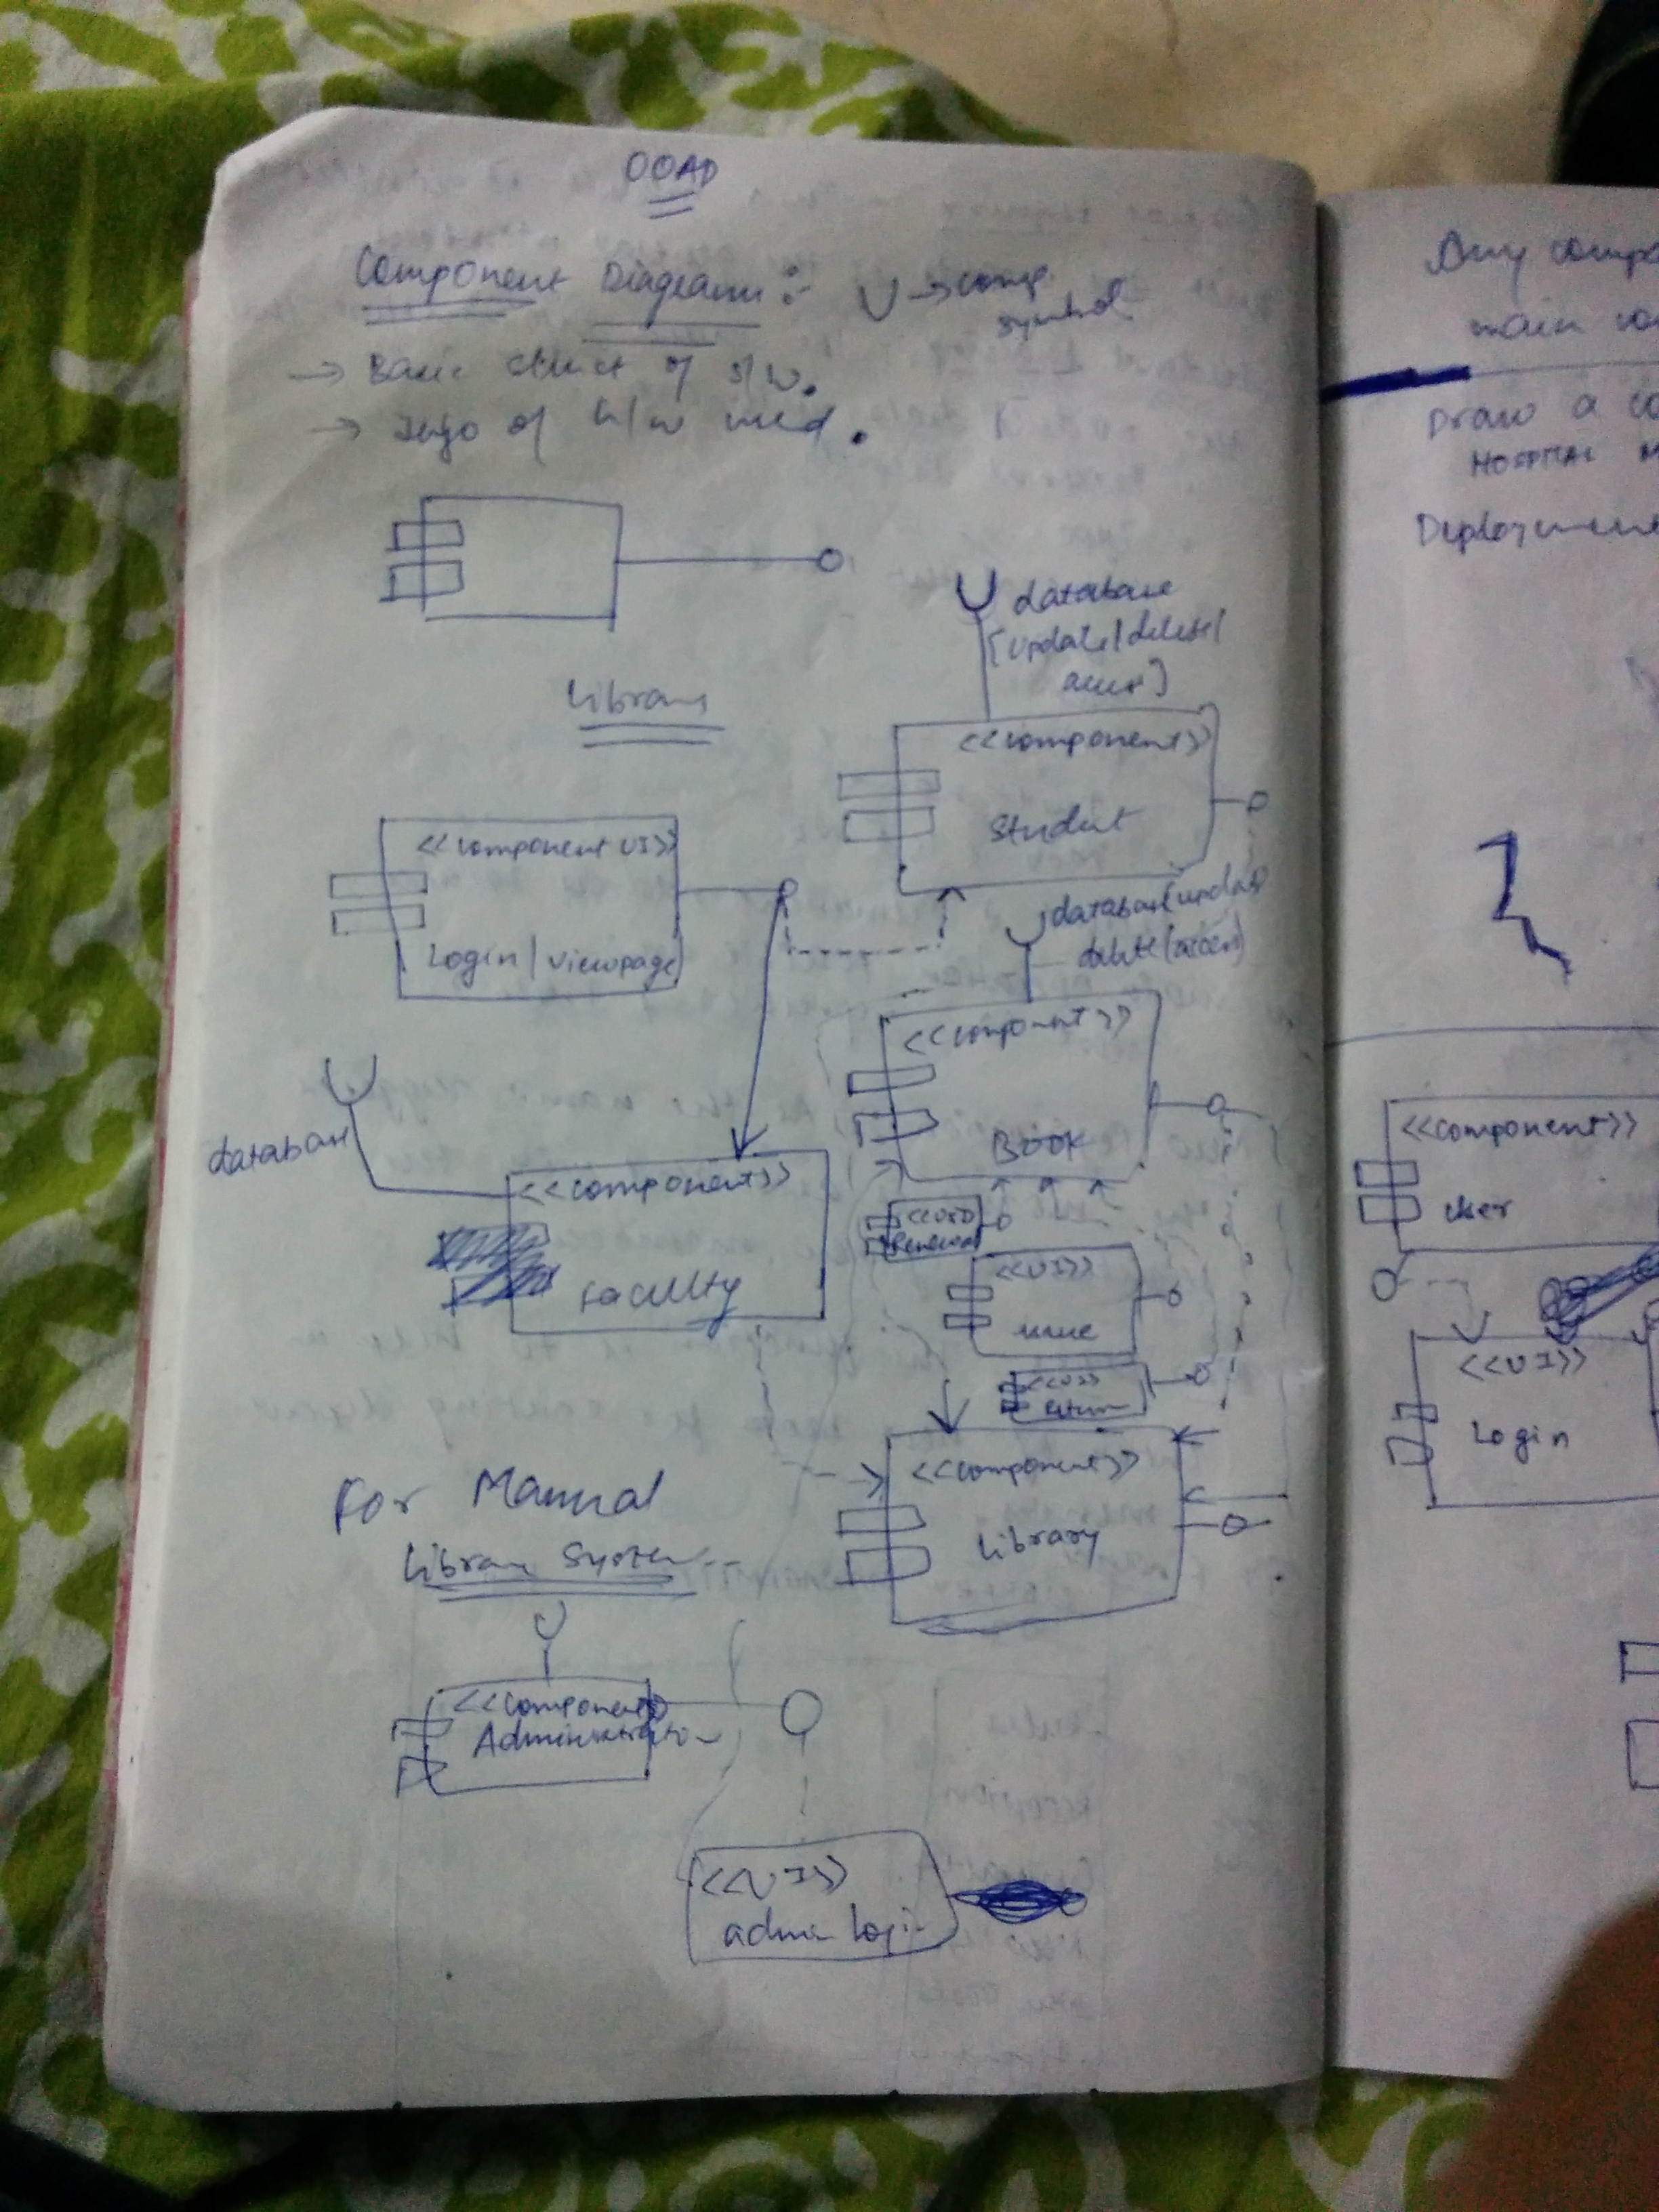 OOAD
Component Diagram :- U → comp.
symbol
→ Basic struct of s/w.
→ Info of h/w used.
Library
database
[update/delete/
access]
<<component>>
Student
<<component UI>>
Login/viewpage
database(update
delete/access)
<<component>>
BOOK
database
<<component>>
Faculty
<<UI>>
Renewal
<<UI>>
issue
<<UI>>
Return
<<component>>
Library
For Manual
Library System
<<component>>
Administration
<<UI>>
admin login
Any comp
main
Draw a co
HOSPITAL M
Deployment
<<component>>
User
<<UI>>
Login